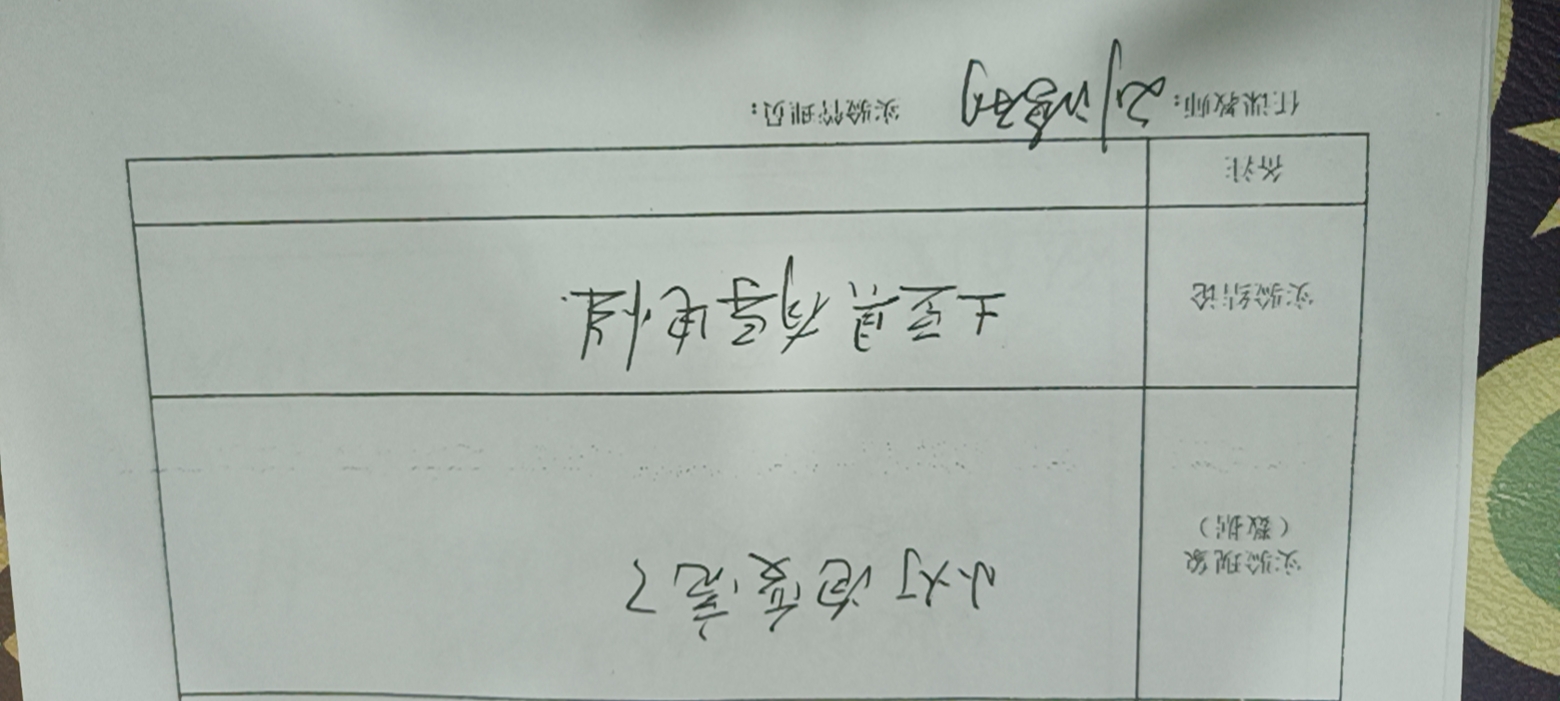 实验现象
（数据）
小灯泡变亮了
实验结论
土豆具有导电性.
备注
任课教师：刘 实验管理员：